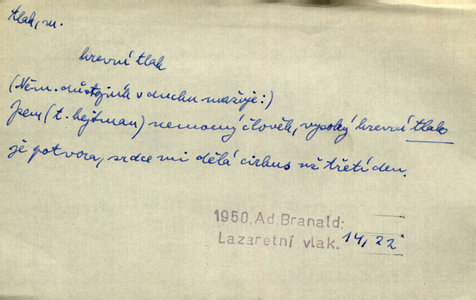 tlak, m.
krevní tlak
(Něm. důstojník v duchu uvažuje:)
Jsem (t. hejtman) nemocný člověk, vysoký krevní tlak
je potvora, srdce mi dělá cirkus už třetí den.
1950, Ad. Branald:
Lazaretní vlak. 14, 22